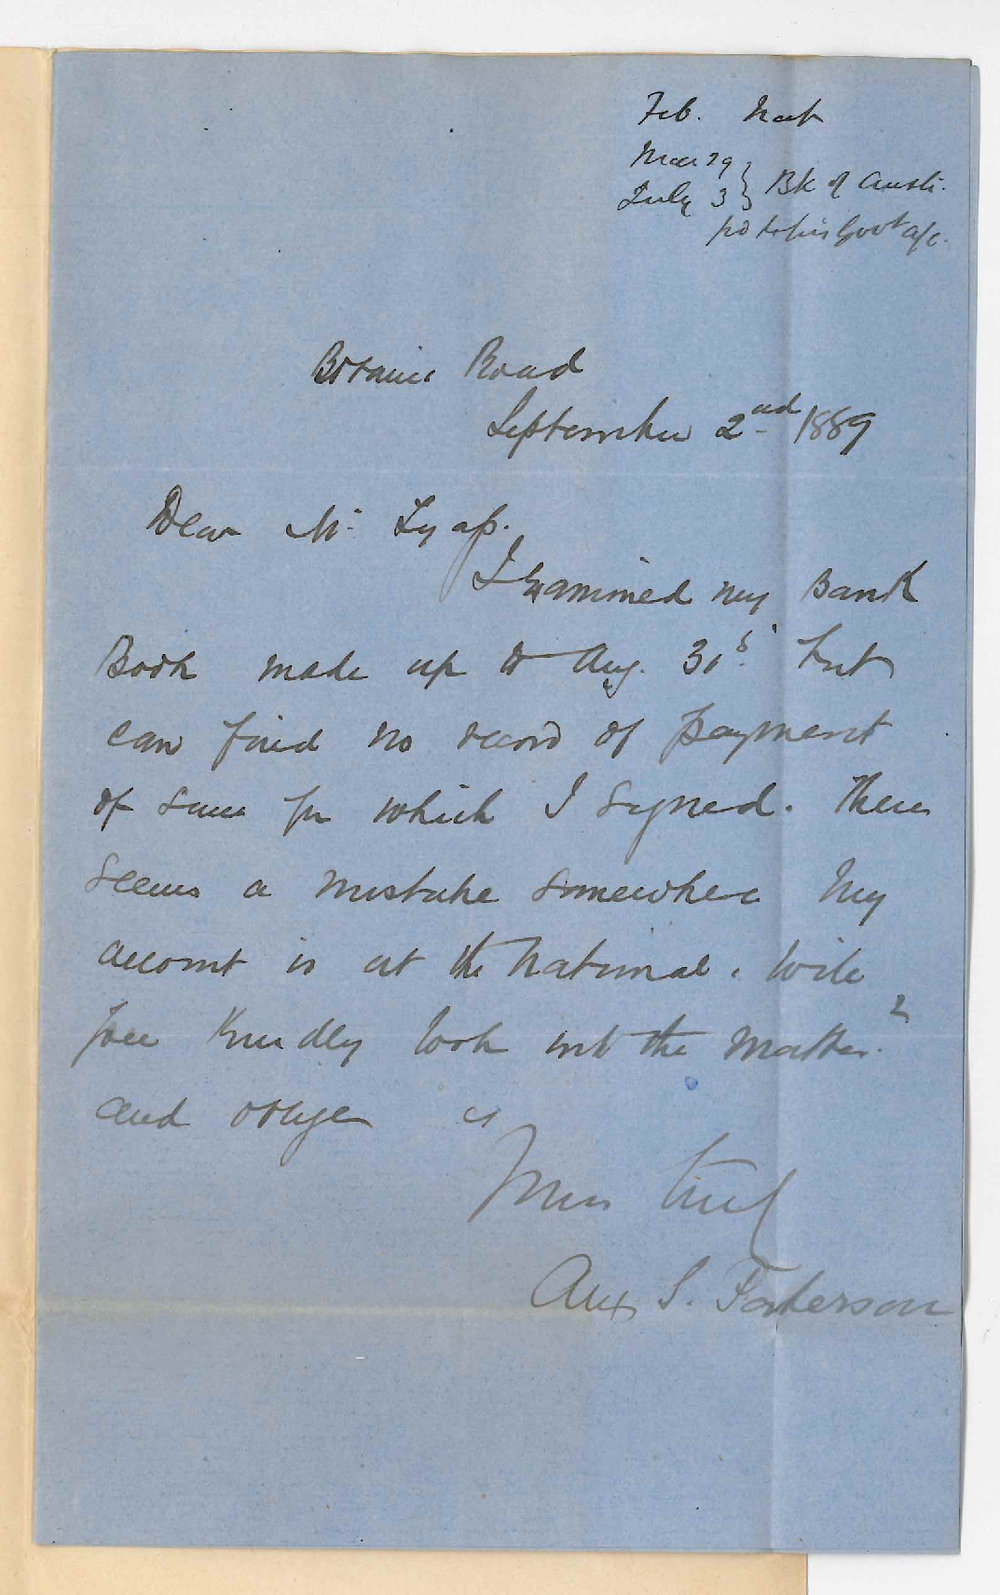 Feb. Nat
Mar 29 } Bk of Austr.
July 3 }
pd to his Govt a/c.
Botanic Road
September 2nd 1889
Dear Mr
I Examined my Bank
Book made up to Aug. 31st but
can find no record of payment
of sum for which I signed. There
seems a mistake somewhere My
account is at the National. Will
you Kindly look into the matter?
and oblige
Yours truly
Alex S. Paterson